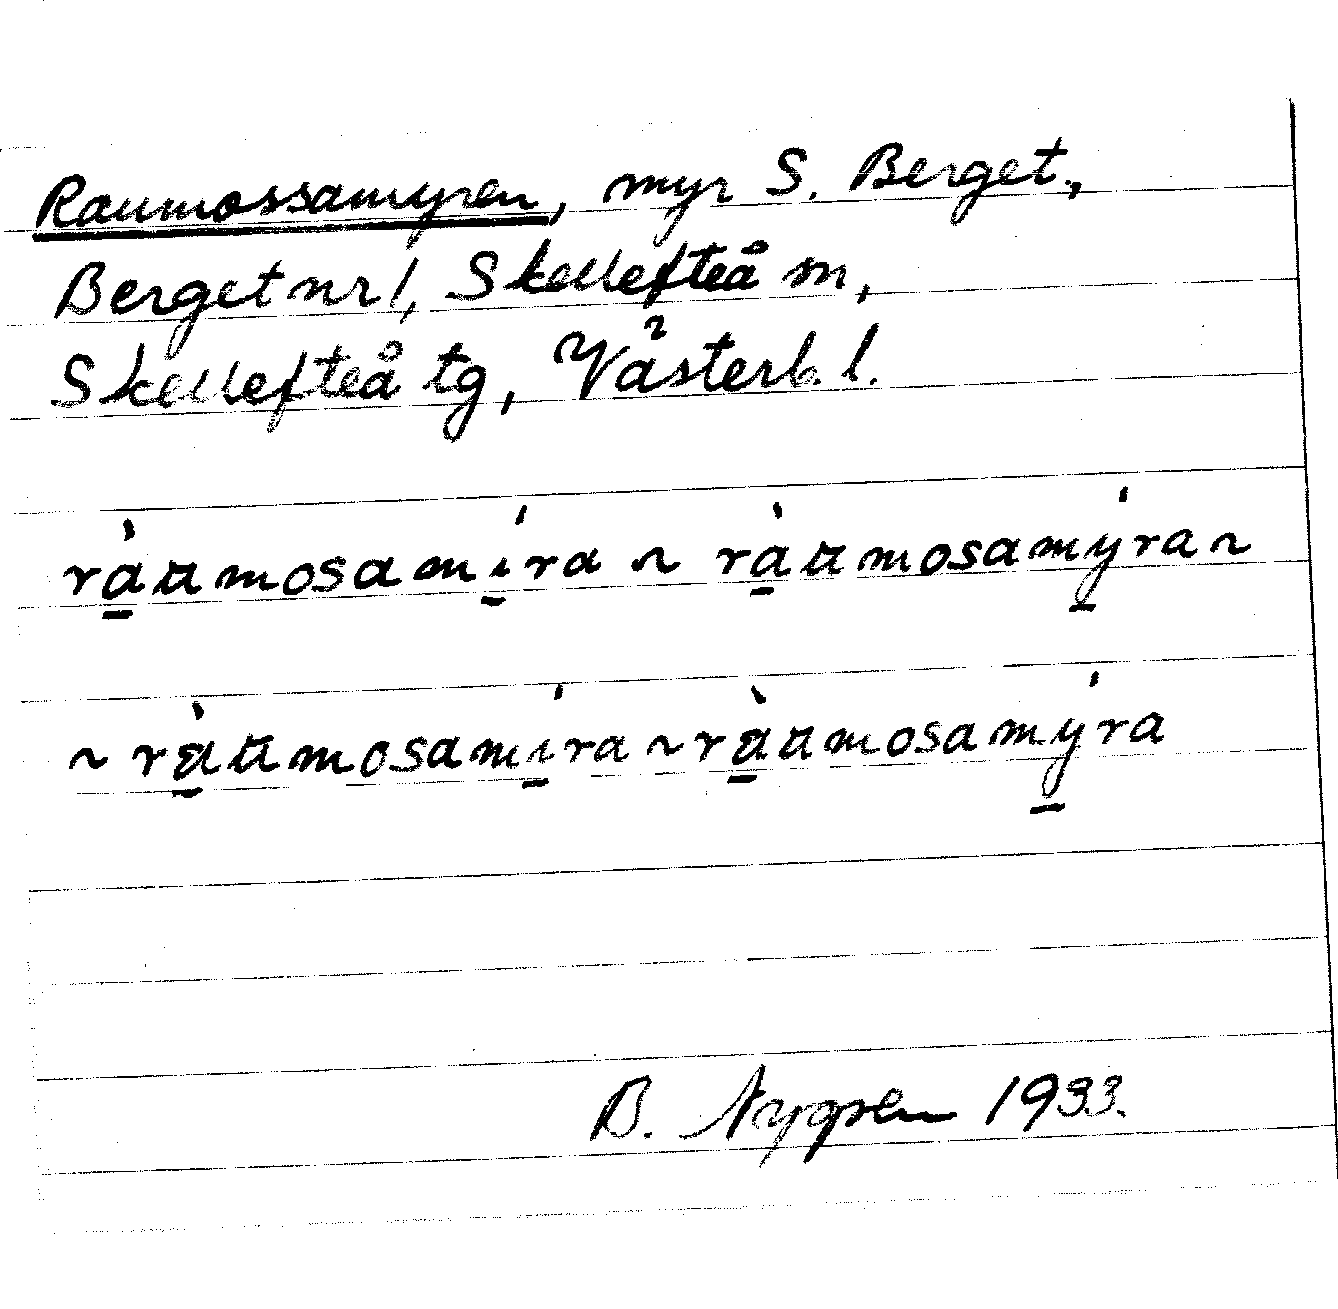 Raumossamyren, myr S. Berget,
Berget nr 1, Skellefteå sn,
Skellefteå tg, Västerb. l.
ràu̯mosamíra ~ ràu̯mosamýra ~
~ rὰu̯mosamíra ~ rὰu̯mosamýra
B. Nygren 1933.